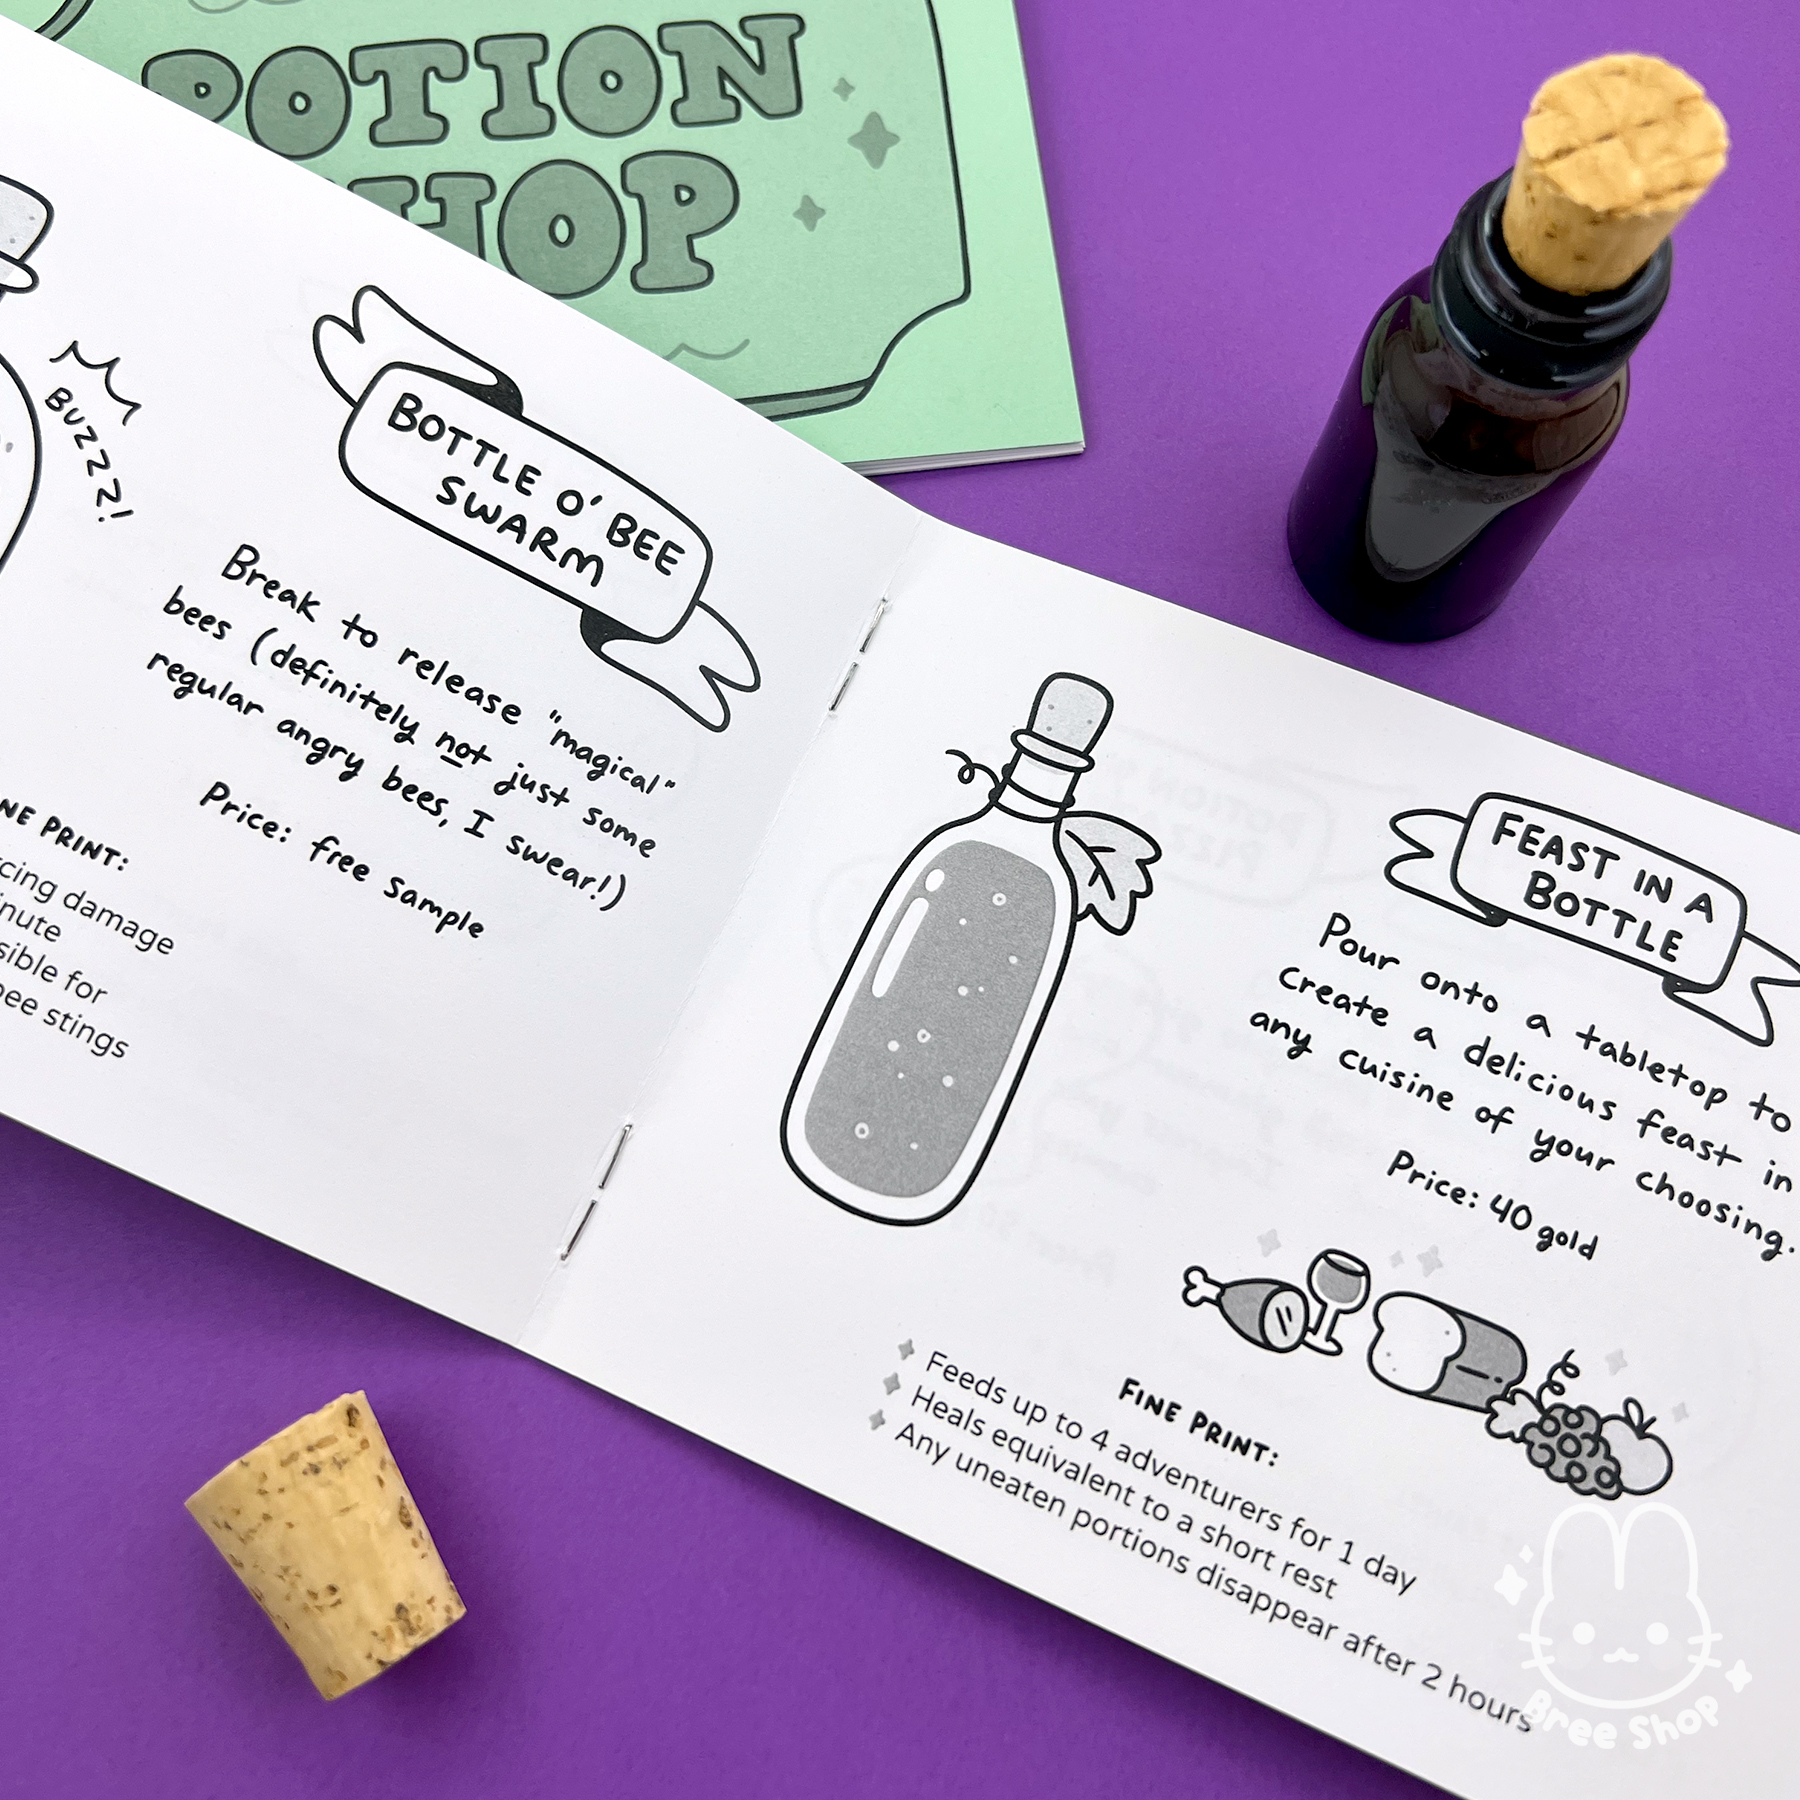 POTION
SHOP
BUZZZ!
BOTTLE O' BEE
SWARM
Break to release "magical"
bees (definitely not just some
regular angry bees, I swear!)
Price: free sample
PRINT:
damage
for
bee stings
FEAST IN A
BOTTLE
Pour onto a tabletop to
create a delicious feast in
any cuisine of your choosing.
Price: 40 gold
FINE PRINT:
Feeds up to 4 adventurers for 1 day
Heals equivalent to a short rest
Any uneaten portions disappear after 2 hours
Bree Shop